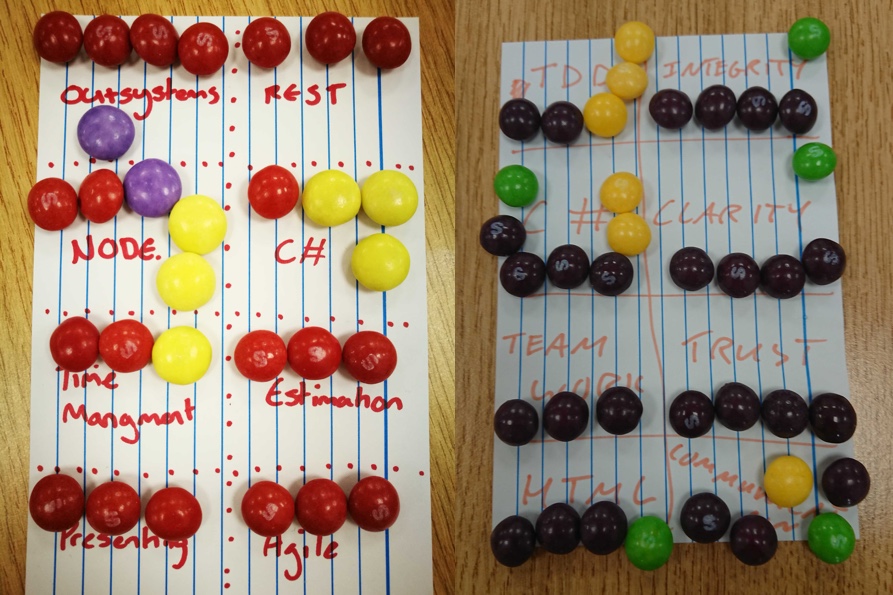 Outsystems REST
NODE. C#
Time
Mangment
Estimation
Presenting
Agile
TDD INTEGRITY
C # CLARITY
TEAM
WORK
TRUST
HTML